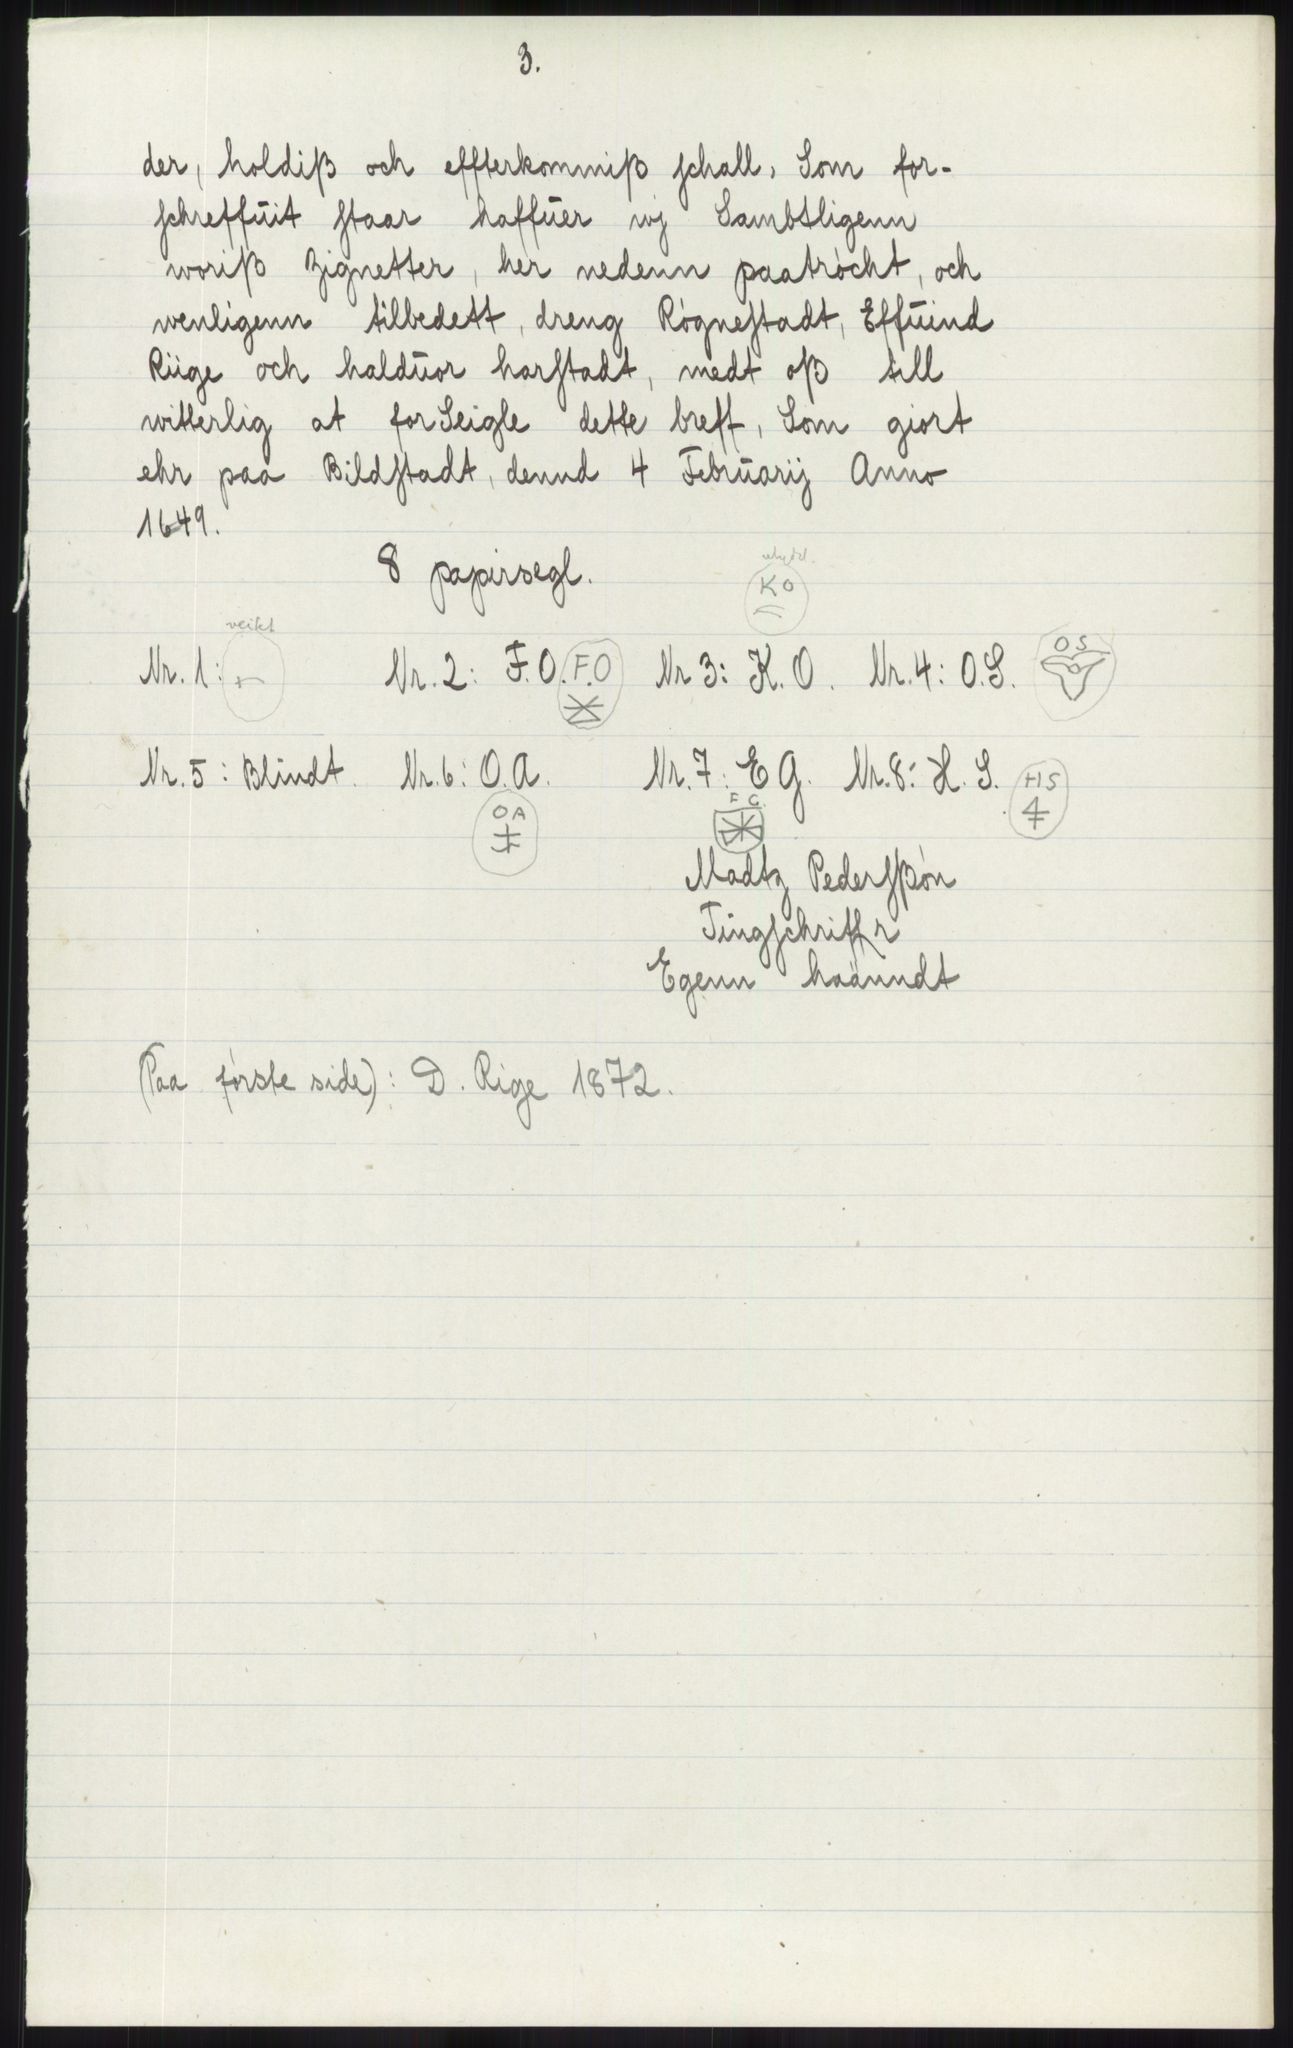 3.
der, holdiß och effterkommiß schall, Som for-
schreffŭit staar haffŭer wj Sambtligenn
woriß Zignetter, her nedenn paatrócht, och
wenligenn tilbedett, dreng Rógnestadt, Effŭind
Riige och haldŭor harstadt, medt oß till
witterlig at forSeigle dette breff, Som giort
ehr paa Bildstadt, dennd 4 Febrŭarij Anno
1649.
8 papirsegl.
K O
veikt
Nr. 1: Nr. 2: F. O. F. O Nr 3: K. O. Nr. 4: O. S. O S
Nr. 5: Blindt. Nr. 6: O. A. Nr. 7: E G. Nr. 8: H. S. H S
O A
Madtz Pederssßón
Tingschriffr
Egenn haanndt
(Paa fórste side): D. Rige 1872.